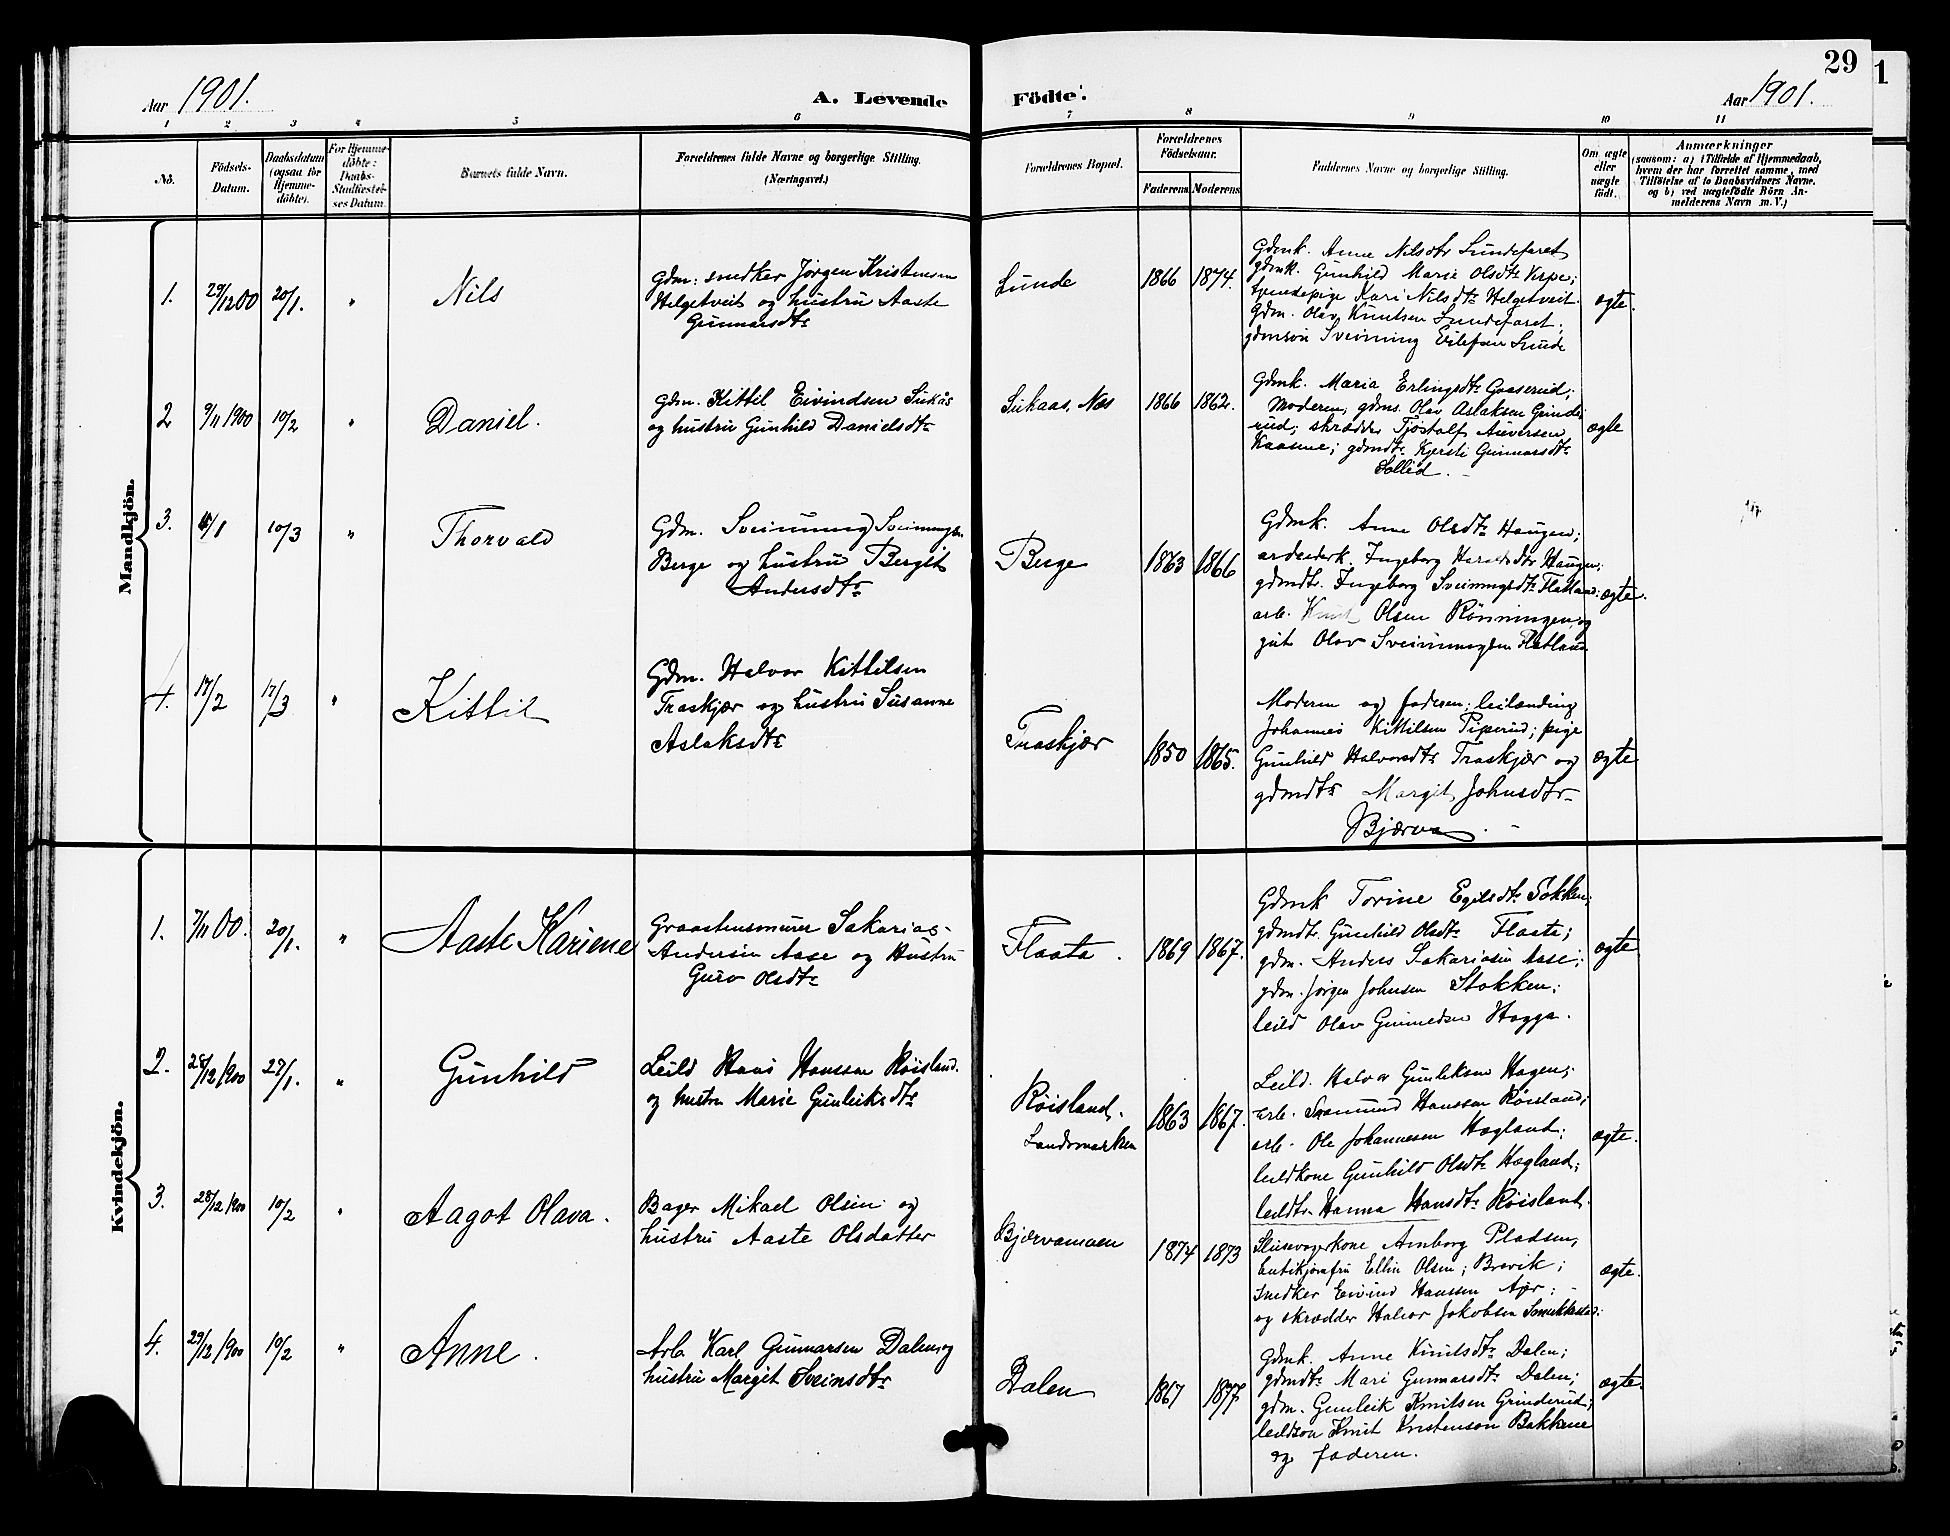 29
1
Aar 1901.
A. Levende Födte.
Aar 1901.
1 2 3 4 5 6 7 8 9 10 11
No.
Födsels-Datum.
Daabsdatum (ogsaa for Hjemme-döbte).
For Hjemme-döbte: Daabs-Stadfæstel-ses Datum.
Barnets fulde Navn.
Forældrenes fulde Navne og borgerlige Stilling.
(Næringsvei.)
Forældrenes Bopæl.
Forældrenes Födselsaar.
Faderens Moderens
Faddernes Navne og borgerlige Stilling.
Om ægte eller uægte født.
Anmærkninger
(saasom: a) i Tilfælde af Hjemmedaab,
hvem der har forrettet samme, med
Tilföielse af to Daabsvidners Navne,
og b) ved uægtefödte Börn An-
melderens Navn m. V.)
Mandkjön.
1. 29/12 00 20/1. " Nils
Gdm: snedker Jørgen Kristensen
Helgetveit og hustru Aaste
Gunnarsdtr
Lunde 1866 1874.
Gdmk. Anne Nilsdtr Lundefaret
gdmk. Gunhild Marie Olsdtr Kispe;
tjenestepige Kari Nilsdtr Helgetveit.
Gdm. Olav Knutsen Lundefaret;
gdmsøn Sveinung Eilefsen Lunde
ægte.
2 9/11 1900 10/2 " Daniel.
Gdm. Kittil Eivindsen Sukås
og hustru Gunhild Danielsdtr
Sukaas, Næs 1866 1862.
Gdmk. Maria Erlingsdtr Gaaserud;
Moderen; gdms. Olav Aslaksen Grinde
rud; skrædder Tjøstolf Auversen
Kaasene; gdmdtr Kjersti Gunnarsdtr
Sollid.
ægte
3. /1 10/3 " Thorvald
Gdm. Sveinung Sveinungsn.
Berge og hustru Bergit
Andersdtr
Berge 1863 1866
Gdmk. Anne Olsdtr Haugen;
arbeiderk. Ingeborg Haraldsdtr Haugen;
gdmdtr. Ingeborg Sveinungsdtr Flatland;
arb. Knut Olsen Rønningen og
gut Olav Sveinungsen Flatland
ægte.
4. 17/2 17/3 " Kittil
Gdm. Halvor Kittilsen
Traskjær og hustru Susanne
Aslaksdtr
Traskjær 1850 1865.
Moderen og faderen; leilænding
Johannes Kittilsen Piperud; pige
Gunhild Halvorsdtr Traskjær og
gdmdtr Margit Johnsdtr
Bjærva.
ægte
Kvindekjön.
1. 7/11 00. 20/1. " Aaste Kariene
Graastensmurer Sakarias
Andersen Aase og Hustru
Guro Olsdtr
Flaata. 1869 1867.
Gdmk Torine Egilsdtr Sokken;
gdmdtr. Gunhild Olsdtr Flaata;
gdm. Anders Sakariasen Aase;
gdm. Jørgen Johnsen Stokken;
leild Olav Hagga.
ægte
2. 28/12 1900 27/1. " Gunhild
Leild Hans Hanssen Røisland.
og hustru Marie Gunleiksdtr
Røisland,
Landsmarken
1863 1867.
Leild. Halvor Gunleiksen Hagen;
arb. Saamund Hanssen Røisland;
arb. Ole Johannesen Hægland;
leildkone Gunhild Olsdtr Hægland;
leildtr. Hanna Hansdtr Røisland.
ægte.
3. 28/12 1900 10/2 " Aagot Olava.
Bager Mikael Olsen og
hustru Aaste Olsdatter
Bjærvamoen 1874 1873
Slusevogterkone Amborg Pladsen,
Butikjomfru Ellen Olsen; Brevik;
Snedker Eivind Hanssen Ajer;
og skrædder Halvor Jakobsen Smukkestad;
ægte.
4. 29/12 1900 10/2 " Anne.
Arb. Karl Gunnarsen Dalen og
hustru Margit Sveinsdtr
Dalen 1867 1877
Gdmk. Anne Knutsdtr Dalen;
gdmdtr Mari Gunnarsdtr Dalen;
gdm. Gunleik Knutsen Grinderud;
leildsøn Knut Kristenson Bakkene
og faderen.
ægte.